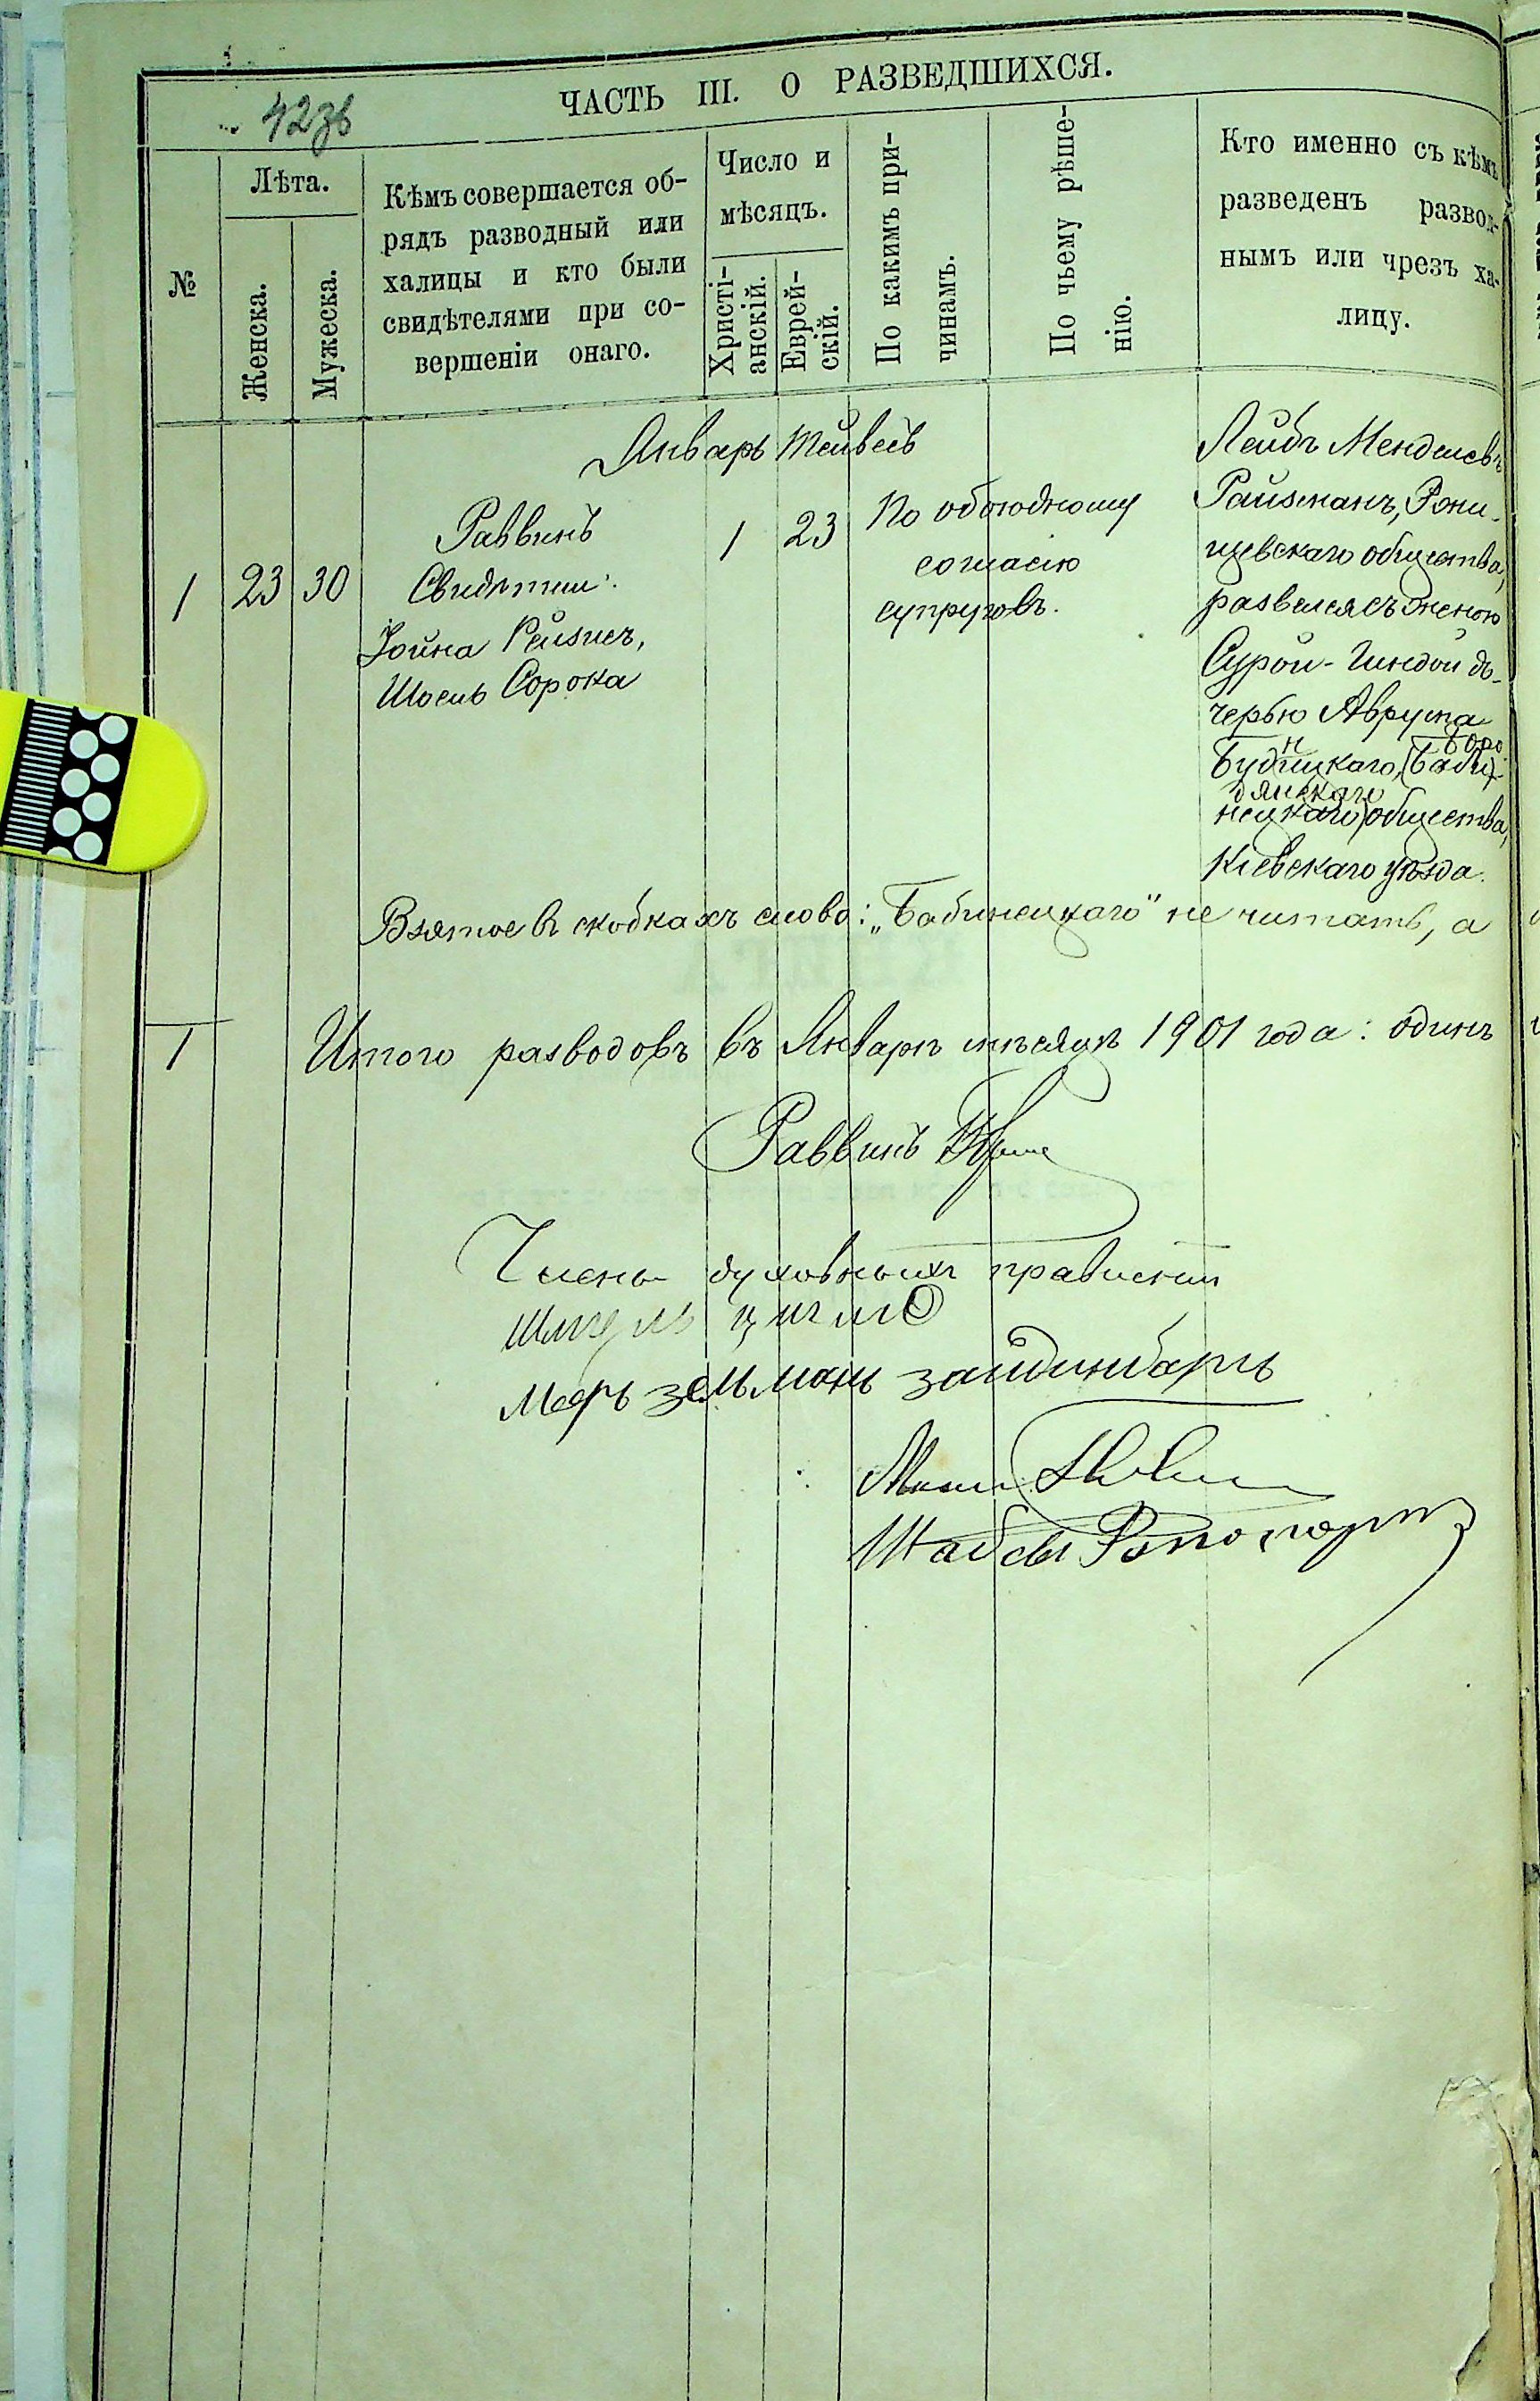 42зв
ЧАСТЬ III. О РАЗВЕДШИХСЯ.
№
Лѣта.
Женска.
Мужеска.
Кѣмъ совершается об-
рядъ разводный или
халицы и кто были
свидѣтелями при со-
вершеніи онаго.
Число и
мѣсяцъ.
Христі-
анскій.
Еврей-
скій.
По какимъ при-
чинамъ.
По чьему рѣше-
нію.
Кто именно съ кѣмъ
разведенъ развод-
нымъ или чрезъ ха-
лицу.
Январь Тейвесъ
1 23 30
Раввинъ
Свидѣтели:
Іойна Рейзисъ,
Шоель Сорока
1 23
По обоюдному
согласію
супруговъ.
Лейбъ Менделевъ
Райзманъ, Рони-
щевскаго общества,
развелся съ женою
Сурой-Гиндой до-
черью Аврума
Будницкаго, (Баби-
Боро
нецкаго) общества,
дянскаго
Кіевскаго уѣзда.
Взятое въ скобкахъ слово: „Бабинецкаго" не читать, а
1 Итого разводовъ въ Январѣ мѣсяцѣ 1901 года: одинъ
Раввинъ
Члены духовныхъ правленій
меръ зельманъ зайдинбаргъ